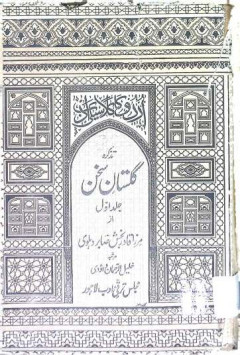 اردو کا کلاسیکی ادب
تذکرہ
گلستانِ سخن
جلد اول
از
مرزا قادر بخش صابر دہلوی
مرتبہ
خلیل الرحمٰن داؤدی
مجلس ترقی ادب لاہور